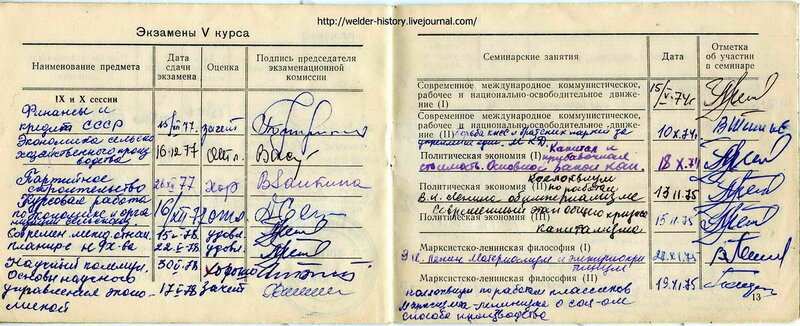 http://welder-history.livejournal.com/
Экзамены V курса
Наименование предмета
Дата сдачи экзамена
Оценка
Подпись председателя экзаменационной комиссии
IX и X сессии
Финансы и
кредит СССР 15/XII 77. зачет
Экономика сельско
хозяйственного произ
водства 16.12.77 Отл.
Партийное
строительство 26.XII 77 хор
Курсовая работа
по экономике и орга
16/XII 77. отл.
15-V-78 удовл.
планиров. н/х-ва 22-V-78 удовл.
Научный коммун. 30-V-78 хорошо
Основы научного
управления эконо- 17-V-78 Зачет
микой
Семинарские занятия
Дата
Отметка об участии в семинаре
Современное международное коммунистическое,
рабочее и национально-освободительное движе-
ние (I)
Современное международное коммунистическое,
рабочее и национально-освободительное движе-
ние (II) братских партий за 10.X.74г
М К Д.
Политическая экономия (I) Капитал и
прибавочная
стоимость. Основной закон кап. 18 X.74г
Политическая экономия (II) Коллоквиум
по работам 13.II.75
В.И. Ленина об империализме
Современный этап общего кризиса
Политическая экономия (III) капитализма 15.II.75г
Марксистско-ленинская философия (I)
В.И. Ленин Материализм и эмпириокри
тицизм
Марксистско-ленинская философия (II)
Коллоквиум по работам классиков 19.XI.75
Марксизма-ленинизма о соц-ом
способе производства
13